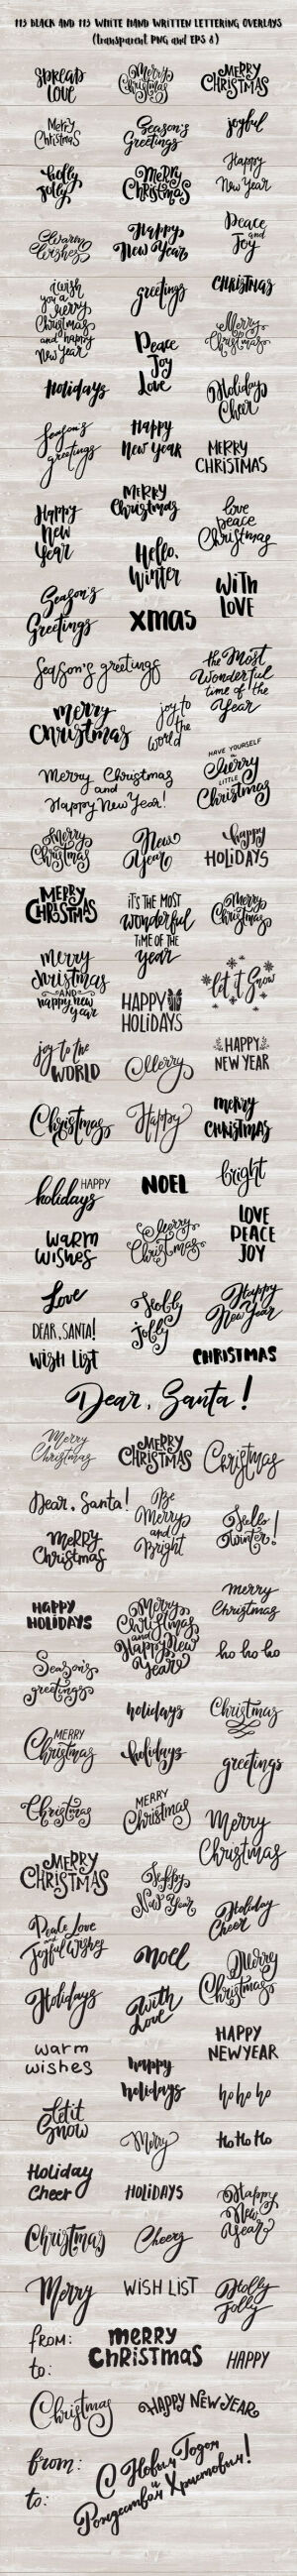 113 BLACK AND 113 WHITE HAND WRITTEN LETTERING OVERLAYS
(transparent PNG and EPS 8)
SPREAD
LOVE
Merry
Christmas
MERRY
CHRISTMAS
Merry
Christmas
Season's
Greetings
joyful
holly
jolly
Merry
Christmas
Happy
New Year
Warm
Wishes
Happy
New Year
Peace
and
Joy
I wish
you a
merry
Christmas
and happy
New Year
greetings
CHRISTMAS
Peace
Joy
Love
Merry
Christmas
Holidays
Holiday
Cheer
Season's
greetings
Happy
New Year
MERRY
CHRISTMAS
Happy
New
Year
MERRY
Christmas
love
peace
Christmas
Hello,
Winter
WITH
LOVE
Season's
Greetings
xmas
Season's greetings
the Most
Wonderful
time of the
Year
merry
Christmas
joy to
the
world
Merry Christmas
and
Happy New Year!
HAVE YOURSELF
a
Merry
LITTLE
Christmas
Merry
Christmas
New
Year
happy
HOLIDAYS
MERRY
CHRISTMAS
IT'S THE MOST
wonderful
TIME OF THE
year
Merry
Christmas
merry
christmas
AND
happy new
year
HAPPY
HOLIDAYS
let it Snow
joy to the
WORLD
Merry
HAPPY
NEW YEAR
Christmas
Happy
merry
CHRISTMAS
HAPPY
holidays
NOEL
bright
WARM
WISHES
Merry
Christmas
LOVE
PEACE
JOY
Love
Holly
jolly
Happy
New Year
DEAR, SANTA!
WISH LIST
CHRISTMAS
Dear, Santa!
Merry
Christmas
MERRY
CHRISTMAS
Christmas
Dear, Santa!
Be
Merry
and
Bright
Hello
Winter!
Merry
Christmas
HAPPY
HOLIDAYS
Merry
Christmas
and
Happy New
Year
Merry
Christmas
ho ho ho
Season's
greetings
holidays
Christmas
MERRY
Christmas
holidays
greetings
Christmas
MERRY
Christmas
Merry
Christmas
MERRY
CHRISTMAS
Happy
New Year
Holiday
Cheer
Peace Love
and
Joyful Wishes
noel
Merry
Christmas
Holidays
With
Love
HAPPY
NEW YEAR
warm
wishes
happy
holidays
ho ho ho
Let it
Snow
Merry
Ho Ho Ho
Holiday
Cheer
HOLIDAYS
Happy
New
Year
Christmas
Cheers
Merry
WISH LIST
Holly
Jolly
FROM:
to:
merry
CHRISTMAS
HAPPY
Christmas
HAPPY NEW YEAR
from:
to:
С Новым Годом
и
Рождеством Христовым!